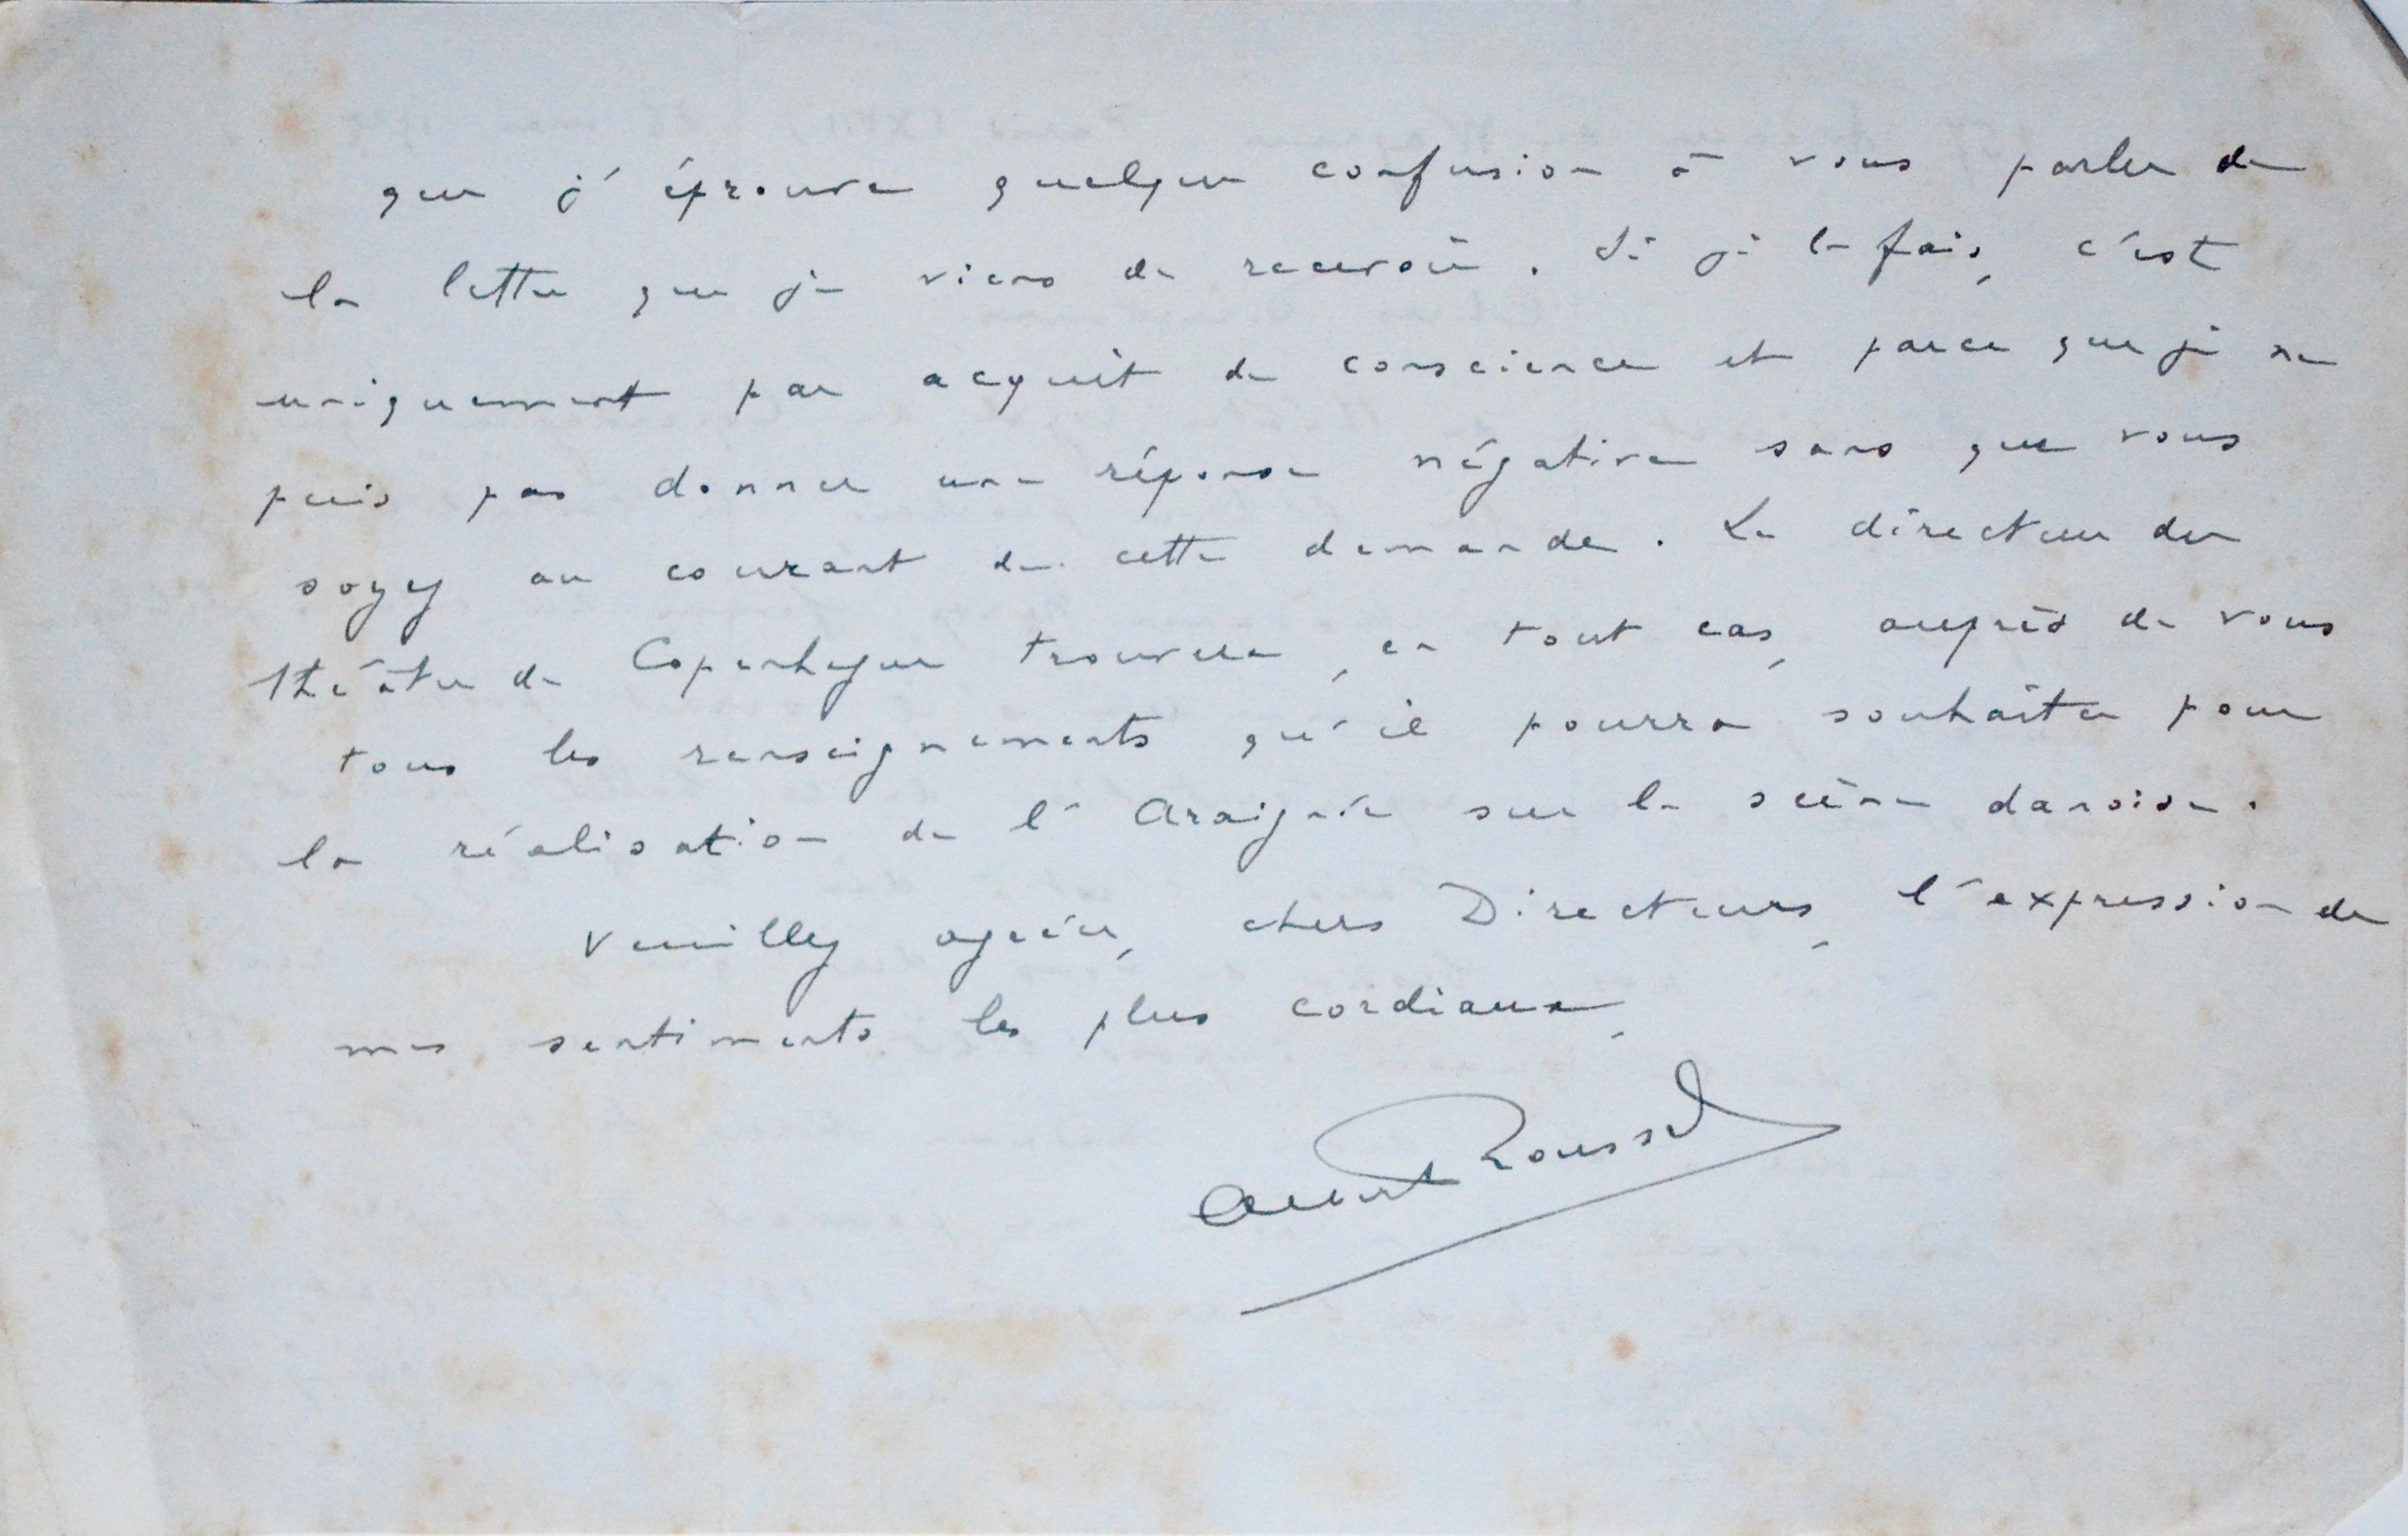 que j'éprouve quelque confusion à vous parler de
la lettre que je viens de recevoir. Si je le fais, c'est
uniquement par acquit de conscience et parce que je ne
puis pas donner une réponse négative sans que vous
soyez au courant de cette demande. Le directeur du
théâtre de Copenhague trouvera, en tout cas, auprès de vous
tous les renseignements qu'il pourra souhaiter pour
la réalisation de l'Araignée sur la scène danoise.
Veuillez agréer, chers Directeurs, l'expression de
mes sentiments les plus cordiaux,
Albert Roussel